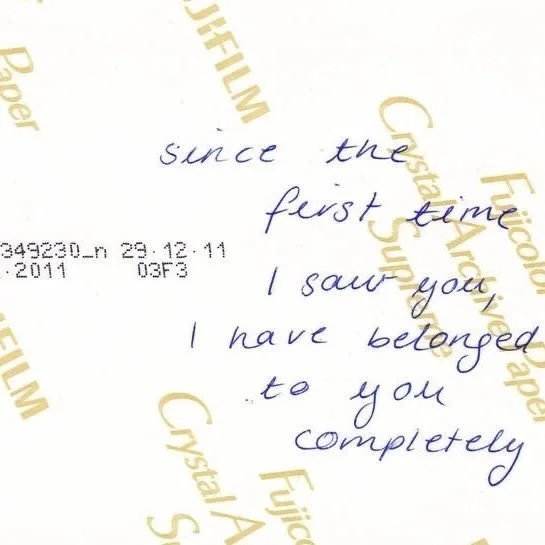 Paper
UJIFILM
since the
first time
Crystal Archive Paper
Supreme
Fujicolor
349230_n 29·12·11
·2011 03F3
I saw you,
I have belonged
FILM
to you
completely
Crystal A
Su
Fujic
FILM